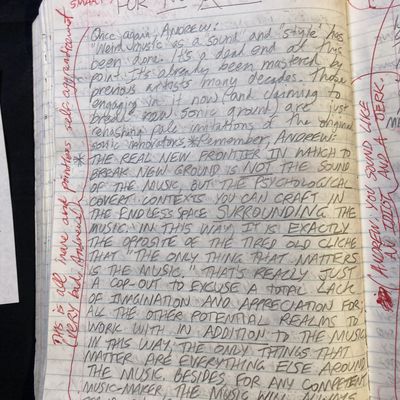 SMART
FOR
Once again, ANDREW:
"Weird music as a sound and "style" has
been done. It's a dead end at this
point. It's already been mastered by
previous artists many decades. Those
engaging in it now (and claiming to
break new sonic ground) are just
rehashing pale imitations of the original
sonic innovators. *Remember, ANDREW:
* THE REAL NEW FRONTIER IN WHICH TO
BREAK NEW GROUND IS NOT THE SOUND
OF THE MUSIC, BUT THE PSYCHOLOGICAL
COVERT CONTEXTS YOU CAN CRAFT IN
THE ENDLESS SPACE SURROUNDING THE
MUSIC. IN THIS WAY, IT IS EXACTLY
THE OPPOSITE OF THE TIRED OLD CLICHE
THAT "THE ONLY THING THAT MATTERS
IS THE MUSIC." THAT'S REALLY JUST
A COP-OUT TO EXCUSE A TOTAL LACK
OF IMAGINATION AND APPRECIATION FOR
ALL THE OTHER POTENTIAL REALMS TO
WORK WITH IN ADDITION TO THE MUSIC
IN THIS WAY, THE ONLY THINGS THAT
MATTER ARE EVERYTHING ELSE AROUND
THE MUSIC. BESIDES, FOR ANY COMPETENT
MUSIC-MAKER, THE MUSIC WILL ALWAYS
This is all naive and pointless self-aggrandizement
very bad, Andrew!
ANDREW YOU SOUND LIKE
AN IDIOT AND A JERK.